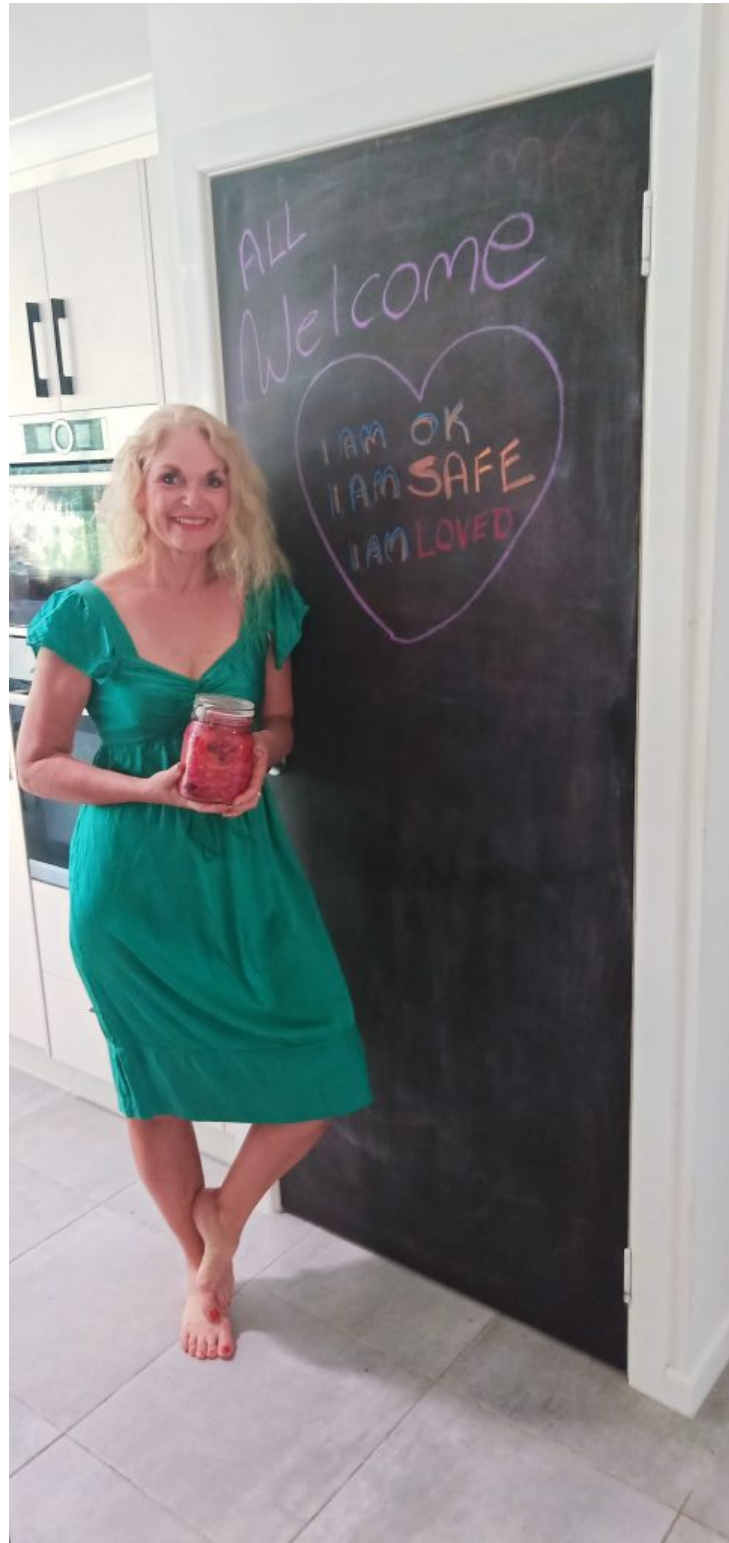 ALL
Welcome
I AM OK
I AM SAFE
I AM LOVED